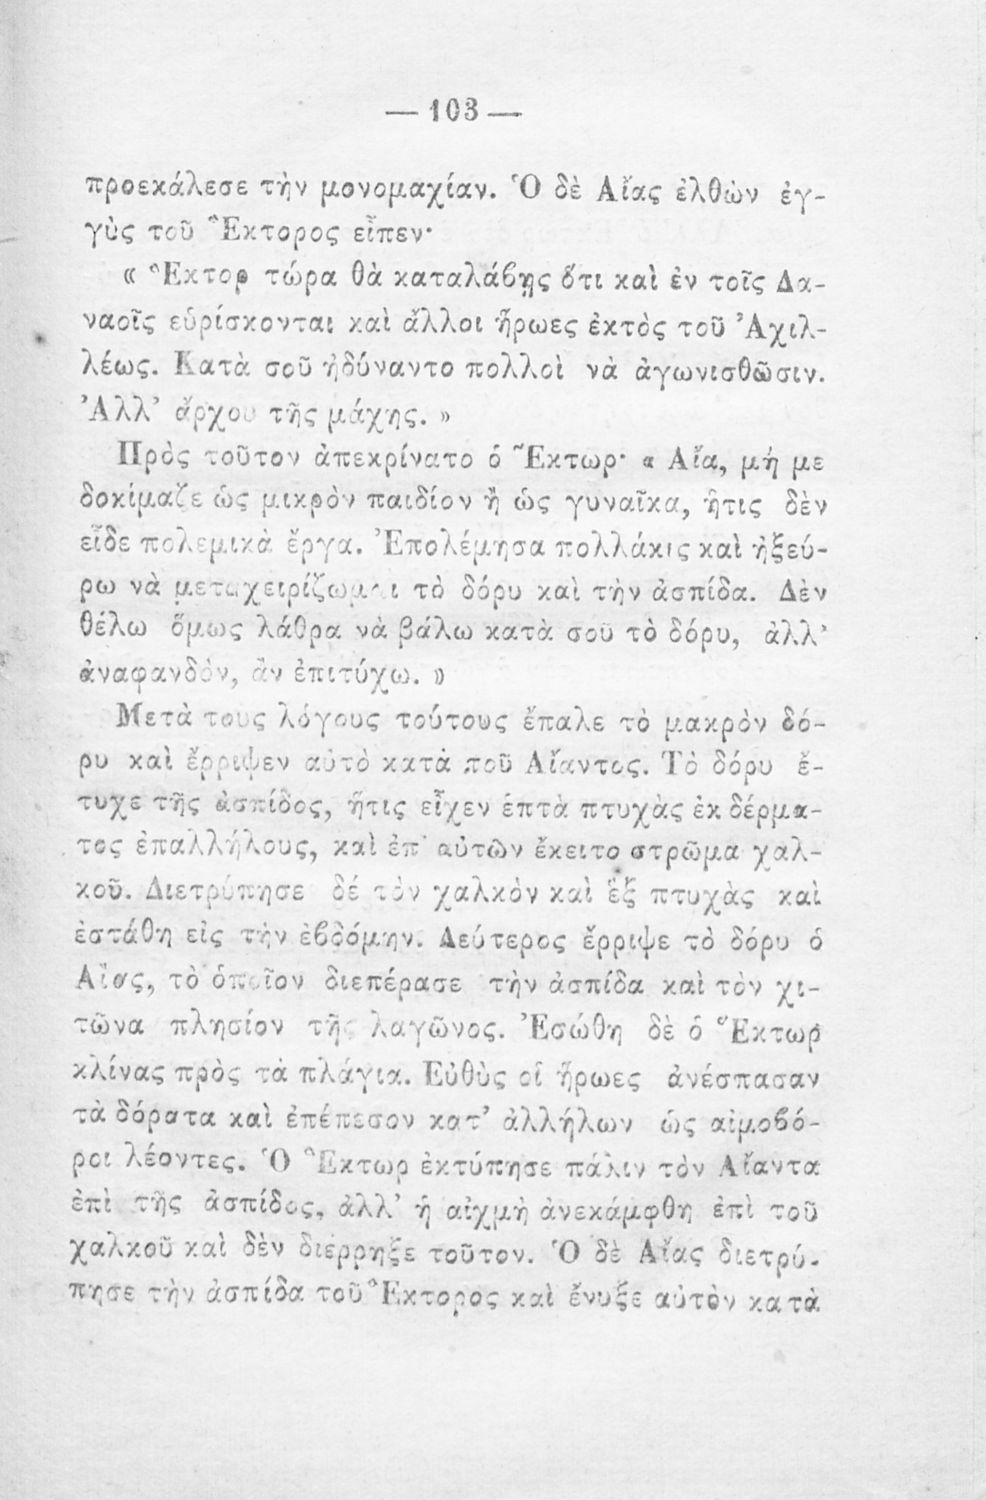 — 103 —
προεκάλεσε τὴν μονομαχίαν. Ὁ δὲ Αἴας ἐλθὼν ἐγ-
γὺς τοῦ Ἕκτορος εἶπεν·
« Ἕκτορ τώρα θὰ καταλάβῃς ὅτι καὶ ἐν τοῖς Δα-
ναοῖς εὑρίσκονται καὶ ἄλλοι ἥρωες ἐκτὸς τοῦ Ἀχιλ-
λέως. Κατὰ σοῦ ἠδύναντο πολλοὶ νὰ ἀγωνισθῶσιν.
Ἀλλ’ ἄρχου τῆς μάχης. »
Πρὸς τοῦτον ἀπεκρίνατο ὁ Ἕκτωρ· « Αἴα, μή με
δοκίμαζε ὡς μικρὸν παιδίον ἢ ὡς γυναῖκα, ἥτις δὲν
εἶδε πολεμικὰ ἔργα. Ἐπολέμησα πολλάκις καὶ ἠξεύ-
ρω νὰ μεταχειρίζωμαι τὸ δόρυ καὶ τὴν ἀσπίδα. Δὲν
θέλω ὅμως λάθρα νὰ βάλω κατὰ σοῦ τὸ δόρυ, ἀλλ’
ἀναφανδὸν, ἂν ἐπιτύχω. »
Μετὰ τους λόγους τούτους ἔπαλε τὸ μακρὸν δό-
ρυ καὶ ἔρριψεν αὐτὸ κατὰ τοῦ Αἴαντος. Τὸ δόρυ ἔ-
τυχε τῆς ἀσπίδος, ἥτις εἶχεν ἑπτὰ πτυχὰς ἐκ δέρμα-
τος ἐπαλλήλους, καὶ ἐπ’ αὐτῶν ἔκειτο στρῶμα χαλ-
κοῦ. Διετρύπησε δέ τὸν χαλκὸν καὶ ἓξ πτυχὰς καὶ
ἐστάθη εἰς τὴν ἑβδόμην. Δεύτερος ἔρριψε τὸ δόρυ ὁ
Αἴας, τὸ ὁποῖον διεπέρασε τὴν ἀσπίδα καὶ τὸν χι-
τῶνα πλησίον τῆς λαγῶνος. Ἐσώθη δὲ ὁ Ἕκτωρ
κλίνας πρὸς τὰ πλάγια. Εὐθὺς οἱ ἥρωες ἀνέσπασαν
τὰ δόρατα καὶ ἐπέπεσον κατ’ ἀλλήλων ὡς αἱμοβό-
ροι λέοντες. Ὁ Ἕκτωρ ἐκτύπησε πάλιν τὸν Αἴαντα
ἐπὶ τῆς ἀσπίδος, ἀλλ’ ἡ αἰχμὴ ἀνεκάμφθη ἐπὶ τοῦ
χαλκοῦ καὶ δὲν διέρρηξε τοῦτον. Ὁ δὲ Αἴας διετρύ-
πησε τὴν ἀσπίδα τοῦ Ἕκτορος καὶ ἔνυξε αὐτὸν κατὰ